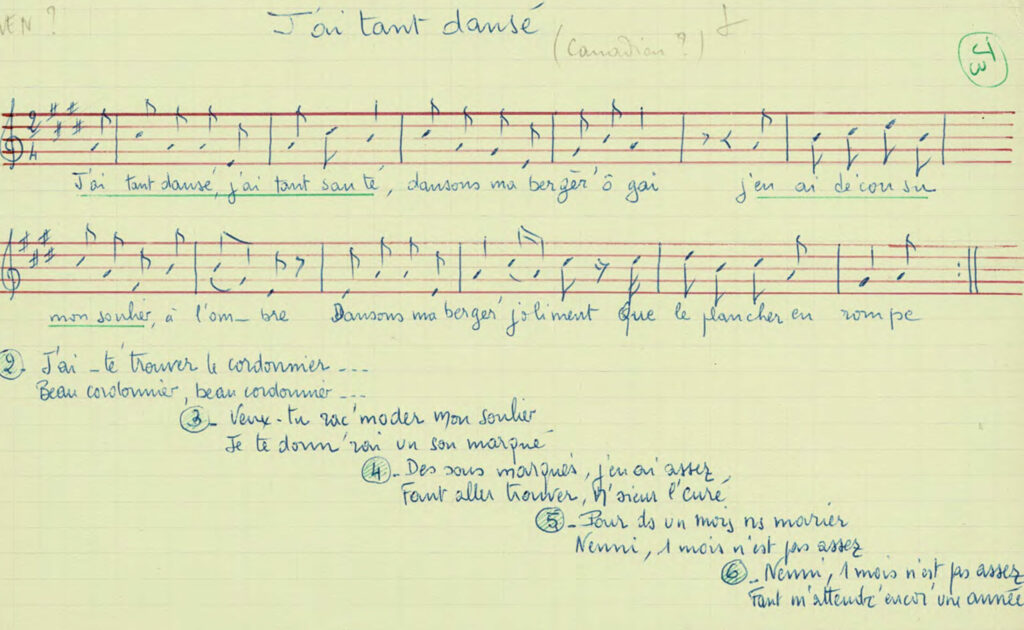 VEN ?
J'ai tant dansé
(Canadien ?)
J3
2
4
J'ai tant dansé, j'ai tant sauté, dansons ma bergèr' ô gai j'en ai décousu
mon soulier, à l'om_bre Dansons ma berger' joliment Que le plancher en rompe
2 - J'ai _té trouver le cordonnier ...
Beau cordonnier, beau cordonnier ...
3 - Veux-tu rac'moder mon soulier
Je te donn'rai un sou marqué
4 - Des sous marqués, j'en ai assez
Faut aller trouver, M'sieur l'curé
5 - Pour ds un mois ns marier
Nenni, 1 mois n'est pas assez
6 - Nenni, 1 mois n'est pas assez
Faut m'attendr' encor' une année